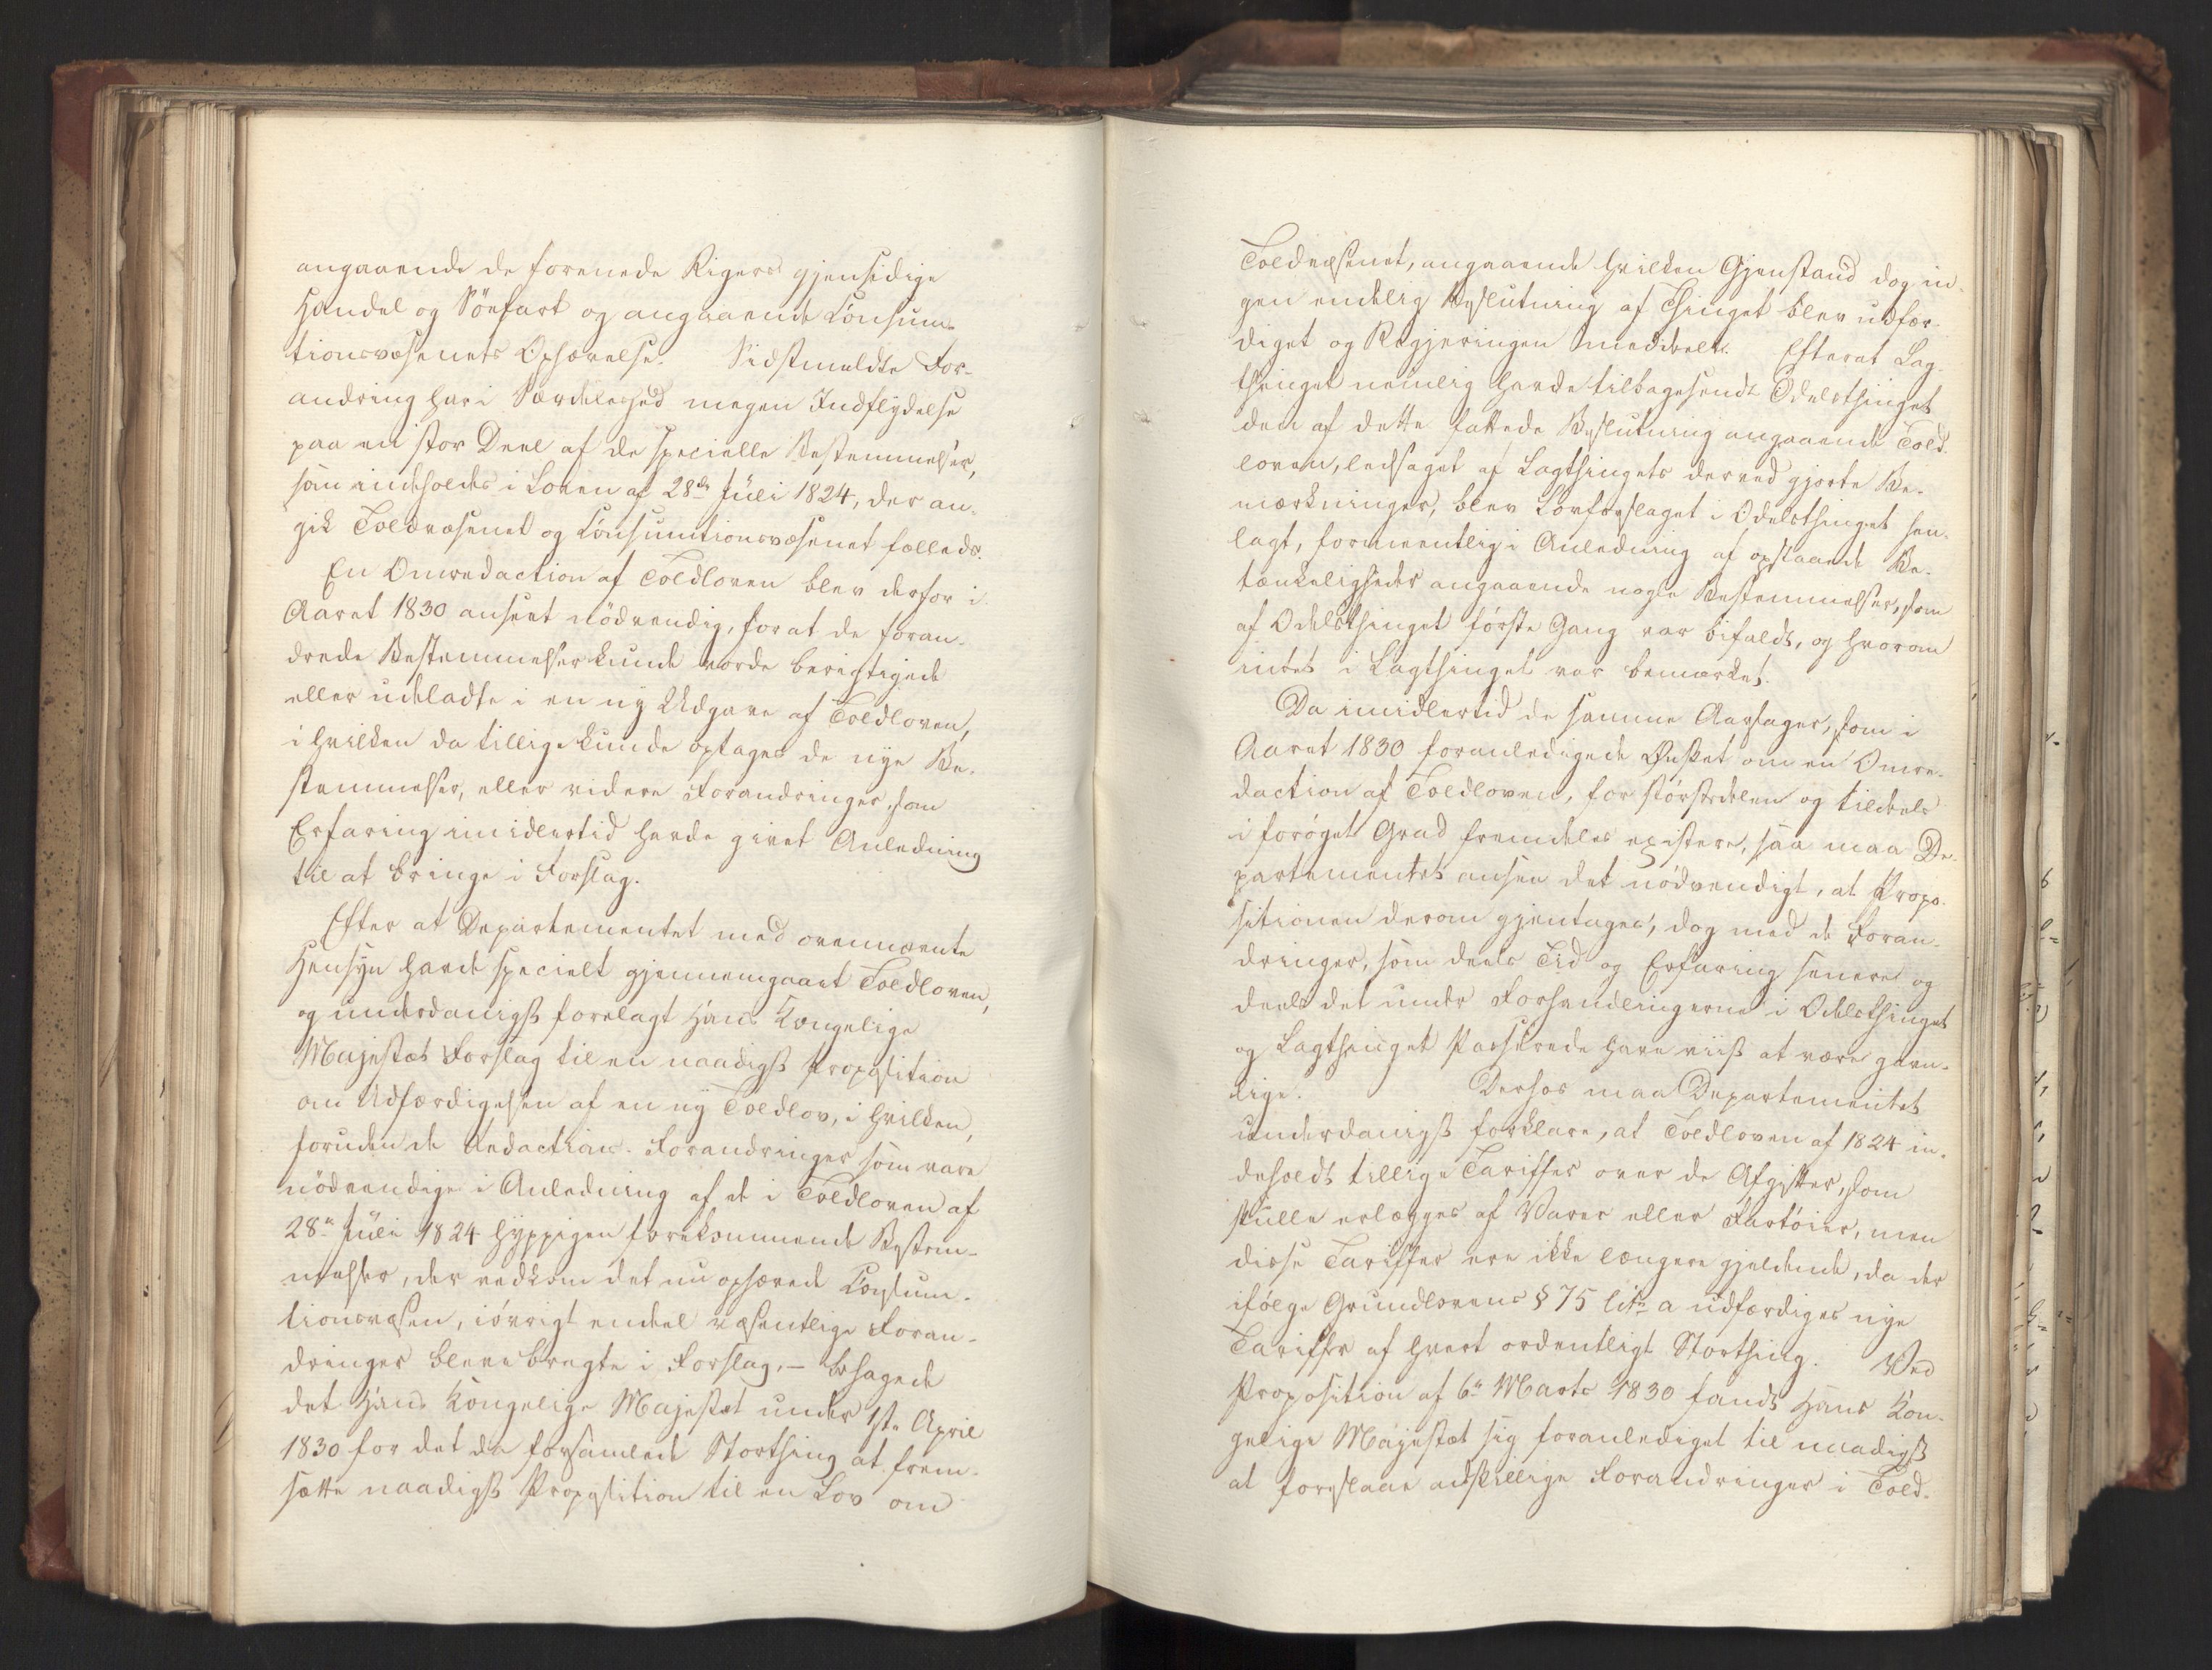 angaaende de forenede Rigers gjensidige
Handel og Söefart og angaaende Consum-
tionsvæsenets Ophævelse. Sidstmeldte For-
andring har i Særdeleshed megen Indflydelse
paa en stor Deel af de specielle Bestemmelser,
som indeholdes i Loven af 28de Juli 1824, der an-
gik Toldvæsenet og Consumtionsvæsenet fælleds.
En Omredaction af Toldloven blev derfor i
Aaret 1830 anseet nödvendig, for at de foran-
drede Bestemmelser kunde vorde berigtigede
eller udeladte i en ny Udgave af Toldloven,
i hvilken da tillige kunde optages de nye Be-
stemmelser, eller videre Forandringer, som
Erfaring imidlertid havde givet Anledning
til at bringe i Forslag.
Efter at Departementet med ovennævnte
Hensyn havde specielt gjennemgaaet Toldloven,
og underdanigst forelagt Hans Kongelige
Majestæt Forslag til en naadigst Proposition
om Udfærdigelsen af en ny Toldlov, i hvilken,
foruden de Redactions-Forandringer som vare
nödvendige i Anledning af de i Toldloven af
28de Juli 1824 hyppigen forekommende Bestem-
melser, der vedkom det nu ophævede Consum-
tionsvæsen, iövrigt endeel væsentlige Foran-
dringer bleve bragte i Forslag, – behagede
det Hans Kongelige Majestæt under 1ste April
1830 for det da forsamlede Storthing at frem-
sætte naadigst Proposition til en Lov om
Toldvæsenet, angaaende hvilken Gjenstand dog in-
gen endelig Beslutning af Thinget blev udfær-
diget og Regjeringen meddeelt. Efterat Lag-
thinget nemlig havde tilbagesendt Odelsthinget
den af dette fattede Beslutning angaaende Told-
loven, ledsaget af Lagthingets derved gjorte Be-
mærkninger, blev Lovforslaget i Odelsthinget hen-
lagt, formeentlig i Anledning af opstaaede Be-
tænkeligheder angaaende nogle Bestemmelser, som
af Odelsthinget förste Gang var bifaldt, og hvorom
intet i Lagthinget var bemærket.
Da imidlertid de samme Aarsager, som i
Aaret 1830 foranledigede Ønsket om en Omre-
daction af Toldloven, for störstedelen og tildeels
i foröget Grad fremdeles existere, saa maa De-
partementet ansee det nödvendigt, at Propo-
sitionen derom gjentages, dog med de Foran-
dringer, som deels Tid og Erfaring senere og
deels det under Forhandlingerne i Odelsthinget
og Lagthinget Passerede have viist at være gavn-
lige. Derhos maa Departementet
underdanigst forklare, at Toldloven af 1824 in-
deholdt tillige Tariffer over de Afgifter, som
skulle erlægges af Varer eller Fartöier, men
disse Tariffer ere ikke længere gjeldende, da der
ifölge Grundlovens § 75 litr a udfærdiges nye
Tariffer af hvert ordentligt Storthing. Ved
Proposition af 6te Marts 1830 fandt Hans Kon-
gelige Majestæt sig foranlediget til naadigst
at foreslaae adskillige Forandringer i Told-